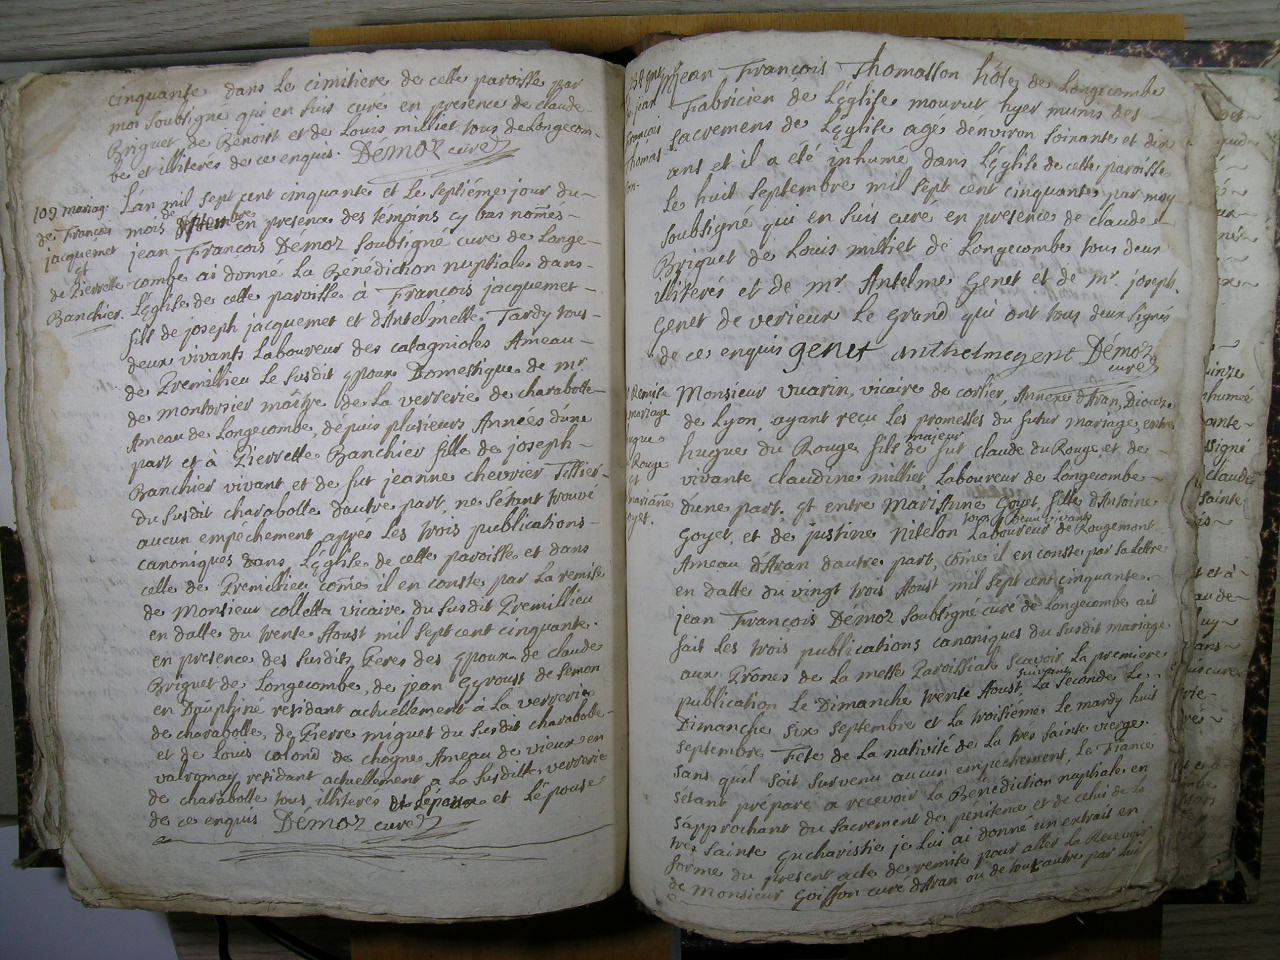 cinquante dans le cimitiere de cette paroisse par
moi soubsigné qui en suis curé en presence de claude
Briquet de Benoist et de Louis milliet tous de Longecom-
be et illiteres de ce enquis. Demoz curé
109 mariag:
de François
jacquemet
et
de Pierrette
Banchier.
L'an mil sept cent cinquante et le septiéme jour du
mois de septembre en presence des temoins cy bas nom̃és
jean François Demoz soubsigné curé de Longe-
combe ai donné la Bénédiction nuptiale dans
L'église de cette paroisse à François jacquemet
fils de joseph jacquemet et d'Antelmette Tardy tous
deux vivants Laboureur des catagnoles Ameau
de Premillieu le susdit epoux Domestique de mr
de montossier maître de la verrerie de charabotte
Ameau de Longecombe, depuis plusieurs Années d'une
part et à Pierrette Banchier fille de joseph
Banchier vivant et de fut jeanne chevrier
du susdit charabotte d'autre part, ne s'étant trouvé
aucun empêchement aprés les trois publications
canoniques dans L'église de cette paroisse et dans
celle de Premillieu com̃e il en conste par la remise
de Monsieur colletta vicaire du susdit Premillieu
en datte du trente Aoust mil sept cent cinquante.
en presence des susdits Peres des epoux de claude
Briquet de Longecombe, de jean Gyroust de semon
en Dauphiné residant actuellement à la verrerie
de charabotte, de Pierre miguet du susdit charabotte
et de Louis colond de chogne Ameau de vieux en
valromay residant actuellement a la susditte verrerie
de charabotte tous illiteres et Lépouse
de ce enquis Demoz curé
jean
François
Thomas-
son.
jean François Thomasson hôte de Longecombe
Fabricien de L'église mourut hyer munis des
sacremens de L'église agé denviron soixante et dix
ans et il a été inhumé dans L'église de cette paroisse
le huit septembre mil sept cent cinquante par moy
soubsigné qui en suis curé en presence de claude
Briquet de Louis milliet de Longecombe tous deux
illiterés et de mr Antelme Genet et de mr joseph
Genet de verieux le grand qui ont tous deux signés
de ce enquis genet anthelme genet Demoz
curé
Remise
mariage
hugue
Rouge
et
marianne
oyet.
Monsieur vuarin, vicaire de corlier, Annexe d'Aran, Diocèse
de Lyon, ayant reçu les promesses du futur mariage entre
hugue du Rouge fils majeur de fut claude du Rouge et de
vivante claudine millier Laboureur de Longecombe
d'une part. et entre MariAnne Goyet, fille d'Antoine
Goyet, et de justine Nitelon tous deux vivants Laboureur de Rougemont
Ameau d'Aran d'autre part, com̃e il en conste par sa lettre
en datte du vingt trois Aoust mil sept cent cinquante
jean François Demoz soubsigné curé de Longecombe ait
fait les trois publications canoniques du susdit mariage
aux Prônes de la messe Paroissiale scavoir la premiere
publication le Dimanche trente Aoust, la seconde le
Dimanche suivant six septembre et la troisiéme le mardy huit
septembre Fête de la nativité de la tres sainte vierge
sans qu'il soit survenu aucun empechement, le Fiancé
s'étant preparé a recevoir la Benediction nuptiale en
s'approchant du sacrement de pénitence et de celui de la
tres sainte eucharistie je lui ai donné un extrait en
forme du present acte de remise pour aller la recevoir
de Monsieur Goiffon curé d'Aran ou de tout autre par lui